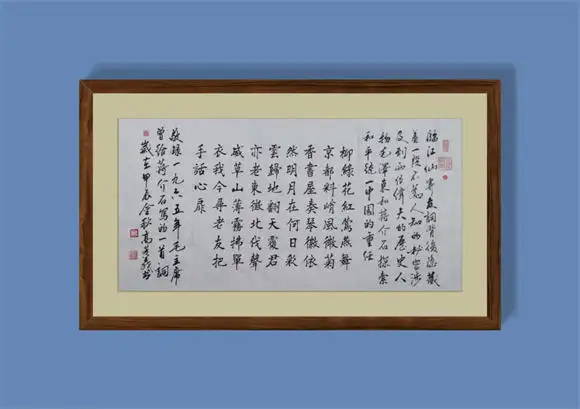 臨江仙寄友詞背後隱藏
着一段不為人知的秘密涉
及到兩位偉大的歷史人
物毛澤東和蔣介石探索
和平統一中國的重任
柳綠花紅鶯燕舞
京都料峭風微菊
香書屋奏琴徽依
然明月在何日彩
雲歸地翻天覆君
亦老東徵北伐聲
威草山薄霧拂單
衣我今尋老友把
手話心扉
敬錄一九六五年毛主席
曾給蔣介石寫的一首詞
歲在甲辰金秋高英書